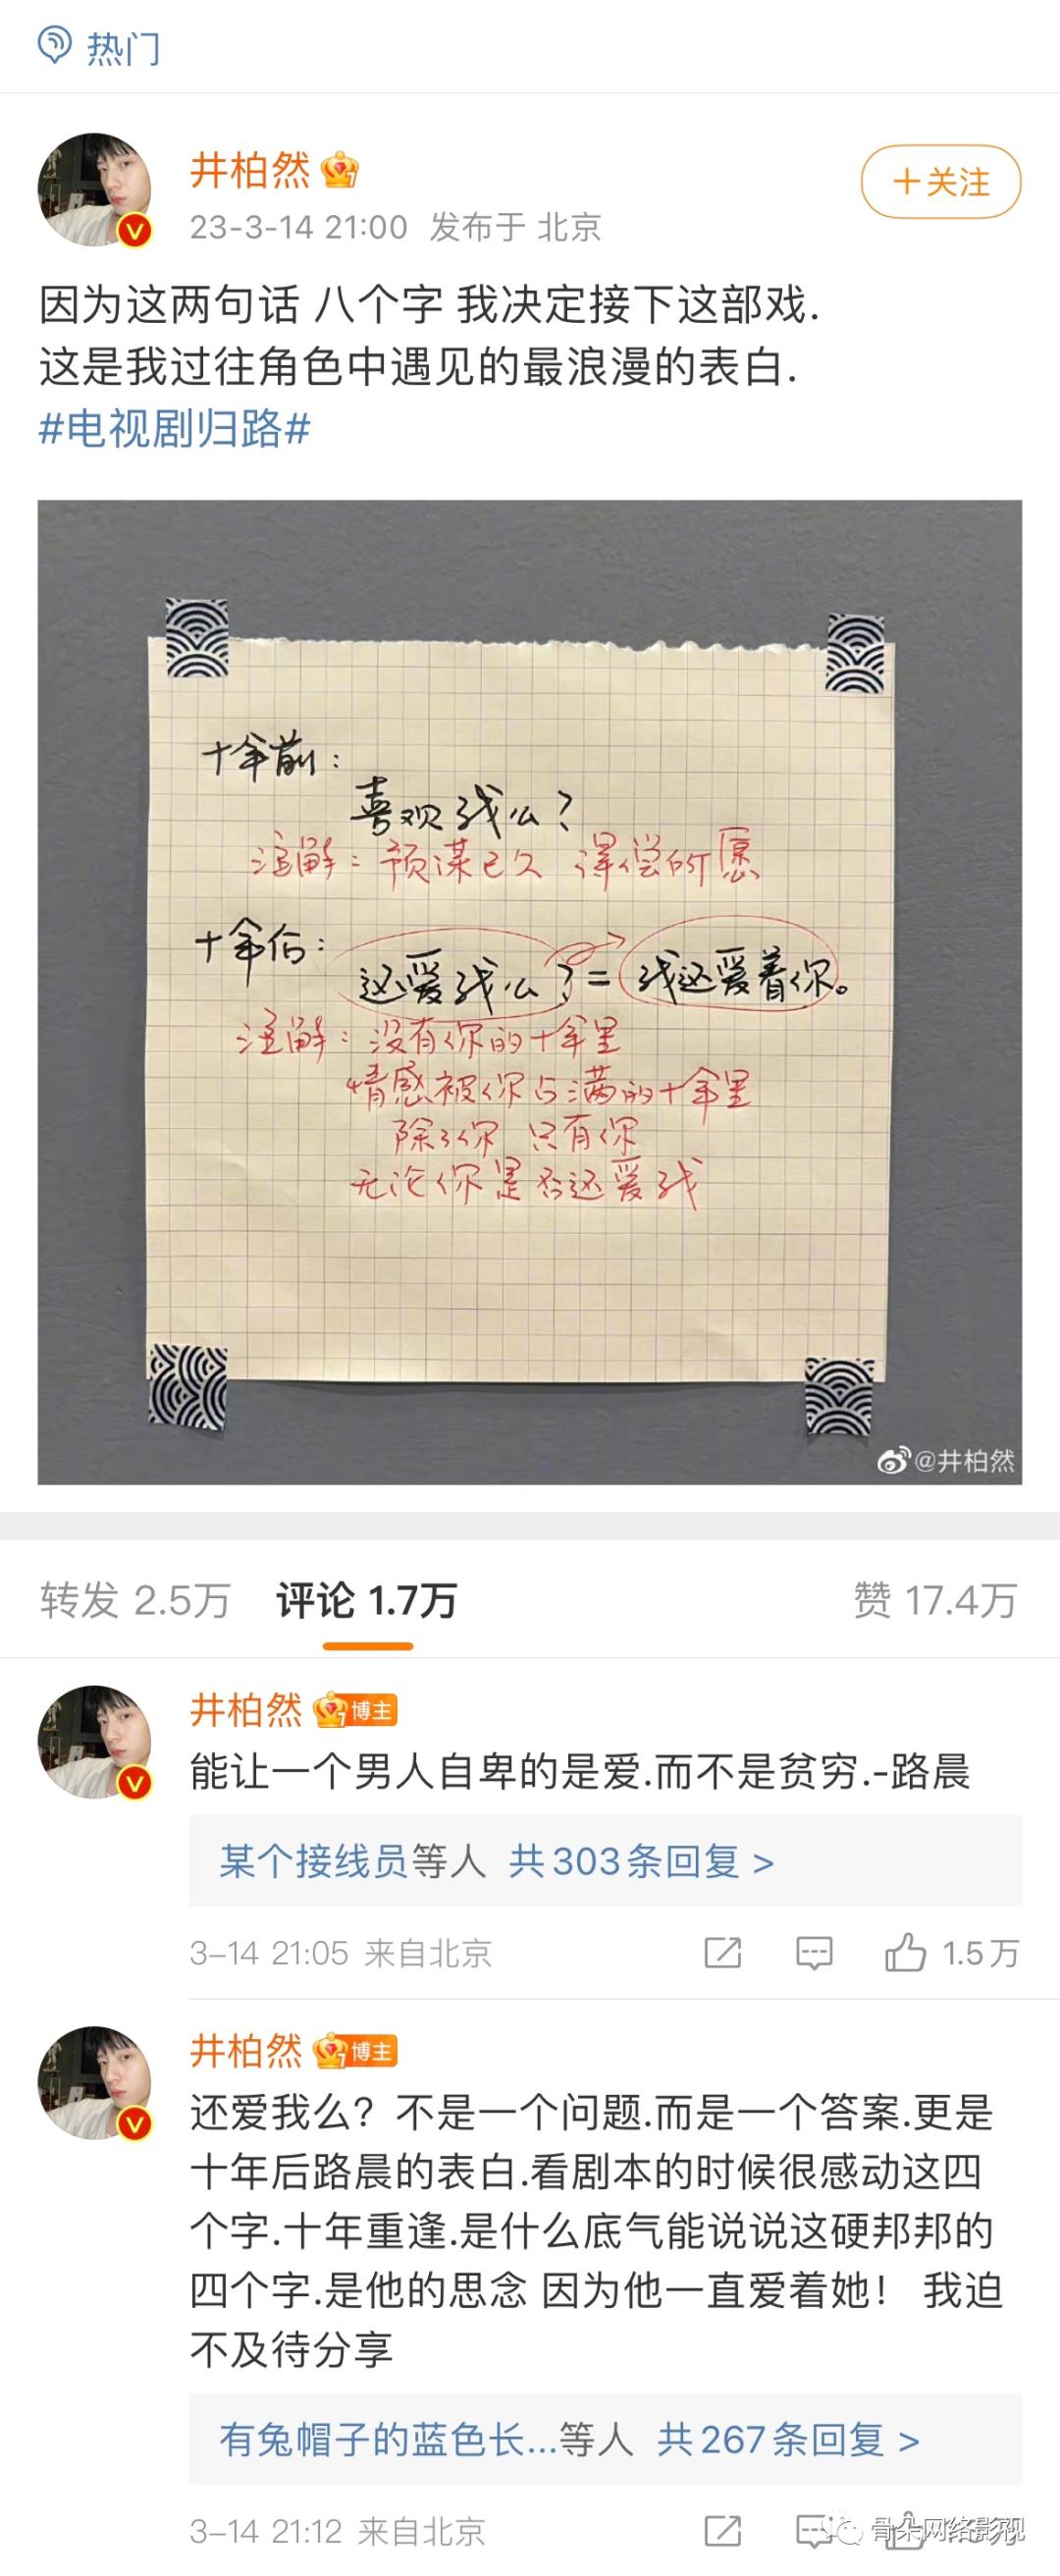 热门
井柏然
+关注
23-3-14 21:00 发布于 北京
因为这两句话 八个字 我决定接下这部戏.
这是我过往角色中遇见的最浪漫的表白.
#电视剧归路#
十年前:
喜欢我么?
注解: 预谋已久 得偿所愿
十年后:
还爱我么? = 我还爱着你。
注解: 没有你的十年里
情感被你占满的十年里
除了你 只有你
无论你是否还爱我
@井柏然
转发 2.5万 评论 1.7万 赞 17.4万
井柏然 博主
能让一个男人自卑的是爱.而不是贫穷.-路晨
某个接线员等人 共303条回复 >
3-14 21:05 来自北京 1.5万
井柏然 博主
还爱我么? 不是一个问题.而是一个答案.更是
十年后路晨的表白.看剧本的时候很感动这四
个字.十年重逢.是什么底气能说说这硬邦邦的
四个字.是他的思念 因为他一直爱着她! 我迫
不及待分享
有兔帽子的蓝色长...等人 共267条回复 >
3-14 21:12 来自北京
骨朵网络影视